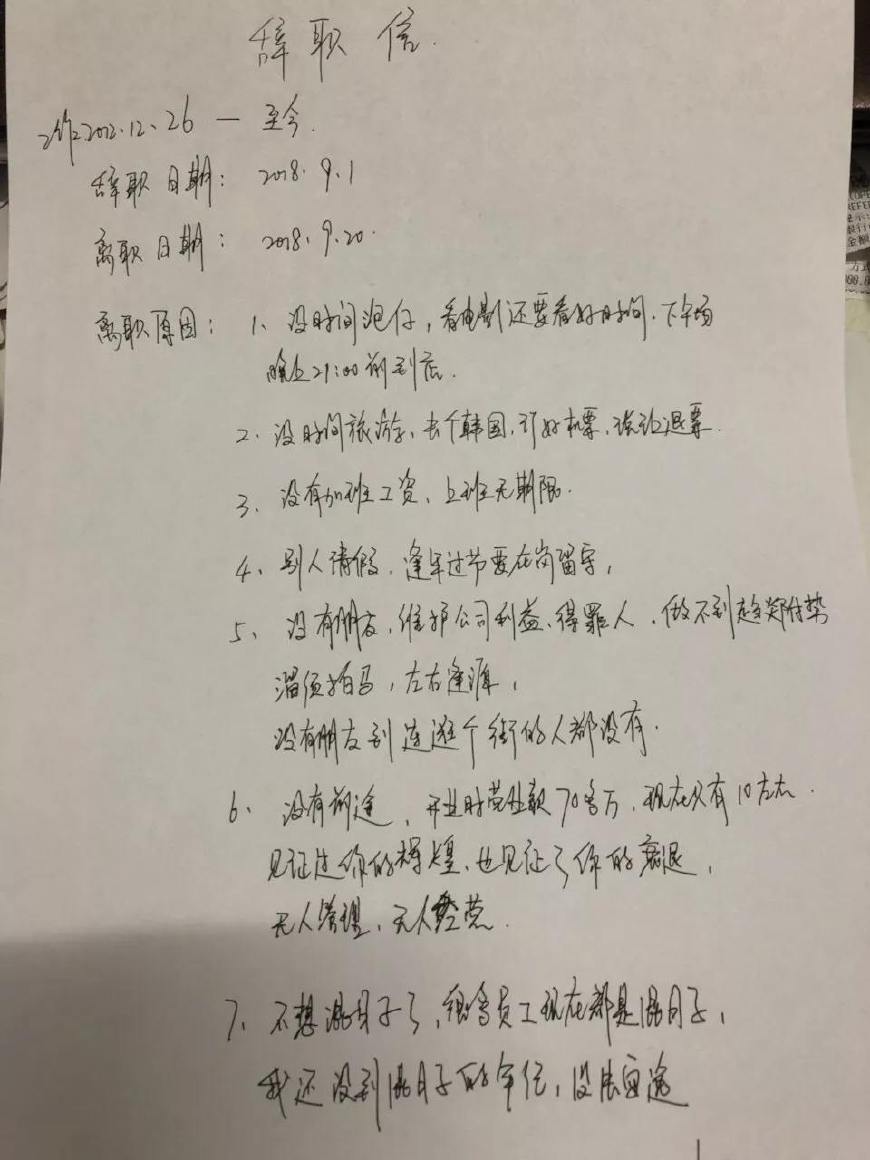 辞职信.
工作2012.12.26 — 至今.
辞职日期: 2018.9.1
离职日期: 2018.9.20.
离职原因: 1、没时间泡仔,看电影还要看好时间.下午场
晚上21:00前到店.
2、没时间旅游,去个韩国,订好机票,被迫退票.
3、没有加班工资、上班无期限.
4、别人请假.逢年过节要在岗留守,
5、没有朋友,维护公司利益、得罪人.做不到趋炎附势
溜须拍马,左右逢源,
没有朋友到连逛个街的人都没有.
6、没有前途,开业时营业款70多万,现在只有10左右.
见证过你的辉煌、也见证了你的衰退,
无人管理、无人经营.
7、不想混日子了,很多员工现在都是混日子,
我还没到混日子的年纪,没法